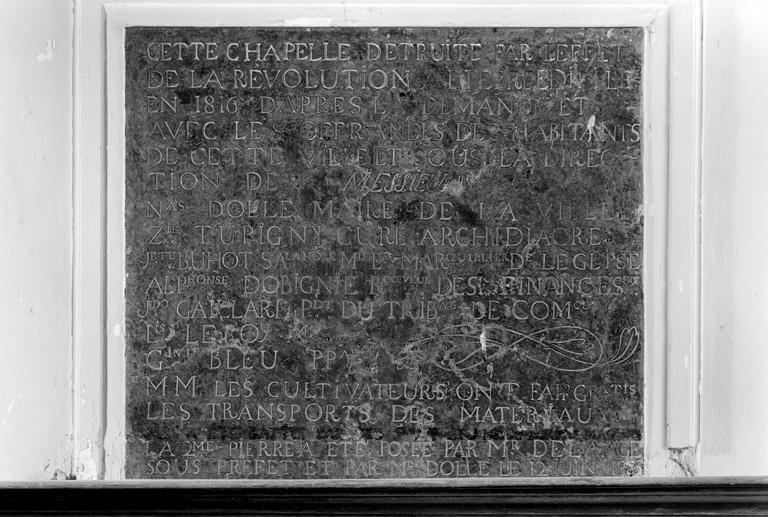 CETTE CHAPELLE DETRUITE PAR LEFFET
DE LA REVOLUTION ETE REEDIFIEE
EN 1816 DAPRES LA DEMANDE ET
AVEC LES OFFRANDES DES HABITANTS
DE CETTE VILLE ET SOUS LA DIREC
TION DE MESSIEURS
NAS DOLLE MAIRE DE LA VILLE
ZIE TURIGNY CURE ARCHIDIACRE
JETE BUHOT MARGUILLIER DE LEGLISE
ALPHONSE DOBIGNIE RECEVEUR DES FINANCES
GAILLARD PDT DU TRIBAL DE COMCE
LIS LEROY
BLEU
MM LES CULTIVATEURS ONT FAIT GRATIS
LES TRANSPORTS DES MATERIAUX
LA 2ME PIERRE A ETE POSEE PAR MR DELA
SOUS PREFET ET PAR MR DOLLE LE 12 JUIN